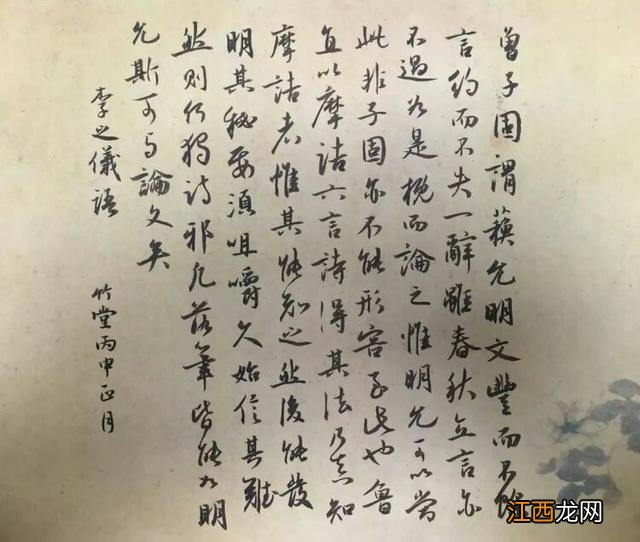 曾子固謂蘓允明文豐而不餘
言約而不失一辭雖春秋立言亦
不過如是概而論之惟明允可以當
此非子固亦不能形容至此也魯
直以摩詰六言詩得其法乃真知
摩詰者惟其能知之然後能發
明其秘要須咀嚼久始信其難
然則何獨詩邪凡落筆皆能如明
允斯可与論文矣
李之儀語 竹堂丙申正月
江西龙网